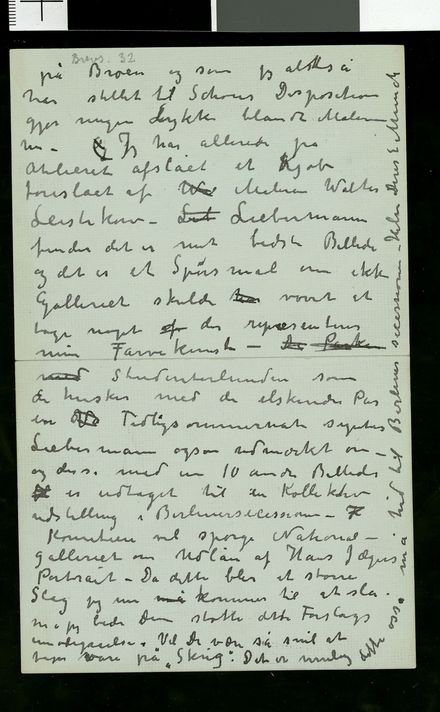 Brevs. 32
på Broen og som jeg altså
har stillet til Schous Disposition
gjør megen Lykke blandt Malerne
her – Jeg har allerede på
Atelieret afslået et Kjøb
foreslået af Maleren Walter
Leistikow – Liebermann
finder det er mit bedste Billede
og det er et Spørsmål om ikke
Galleriet skulde være et
tage noget der representerer
min Farvekunst –
Studenterlunden som
De husker med de elskende Par
en Tidligsommernat synes
Liebermann også udmærket om –
og disse med en 10 andre Billeder
er udtaget til en Kollektiv
udstilling i Berlinersecession –
Komiteen vil spørge National-
galleriet om Udlån af Hans Jægers
Portræt – Da dette blir et større
Slag jeg nu kommer til at slå
må jeg bede Dem støtte dette Forslags
imødegåelse. Vil De være så snil at
svare på "Skrig". Det er nemlig
dette også må hid til Berliner secessionen – Hilsen Deres E Munch